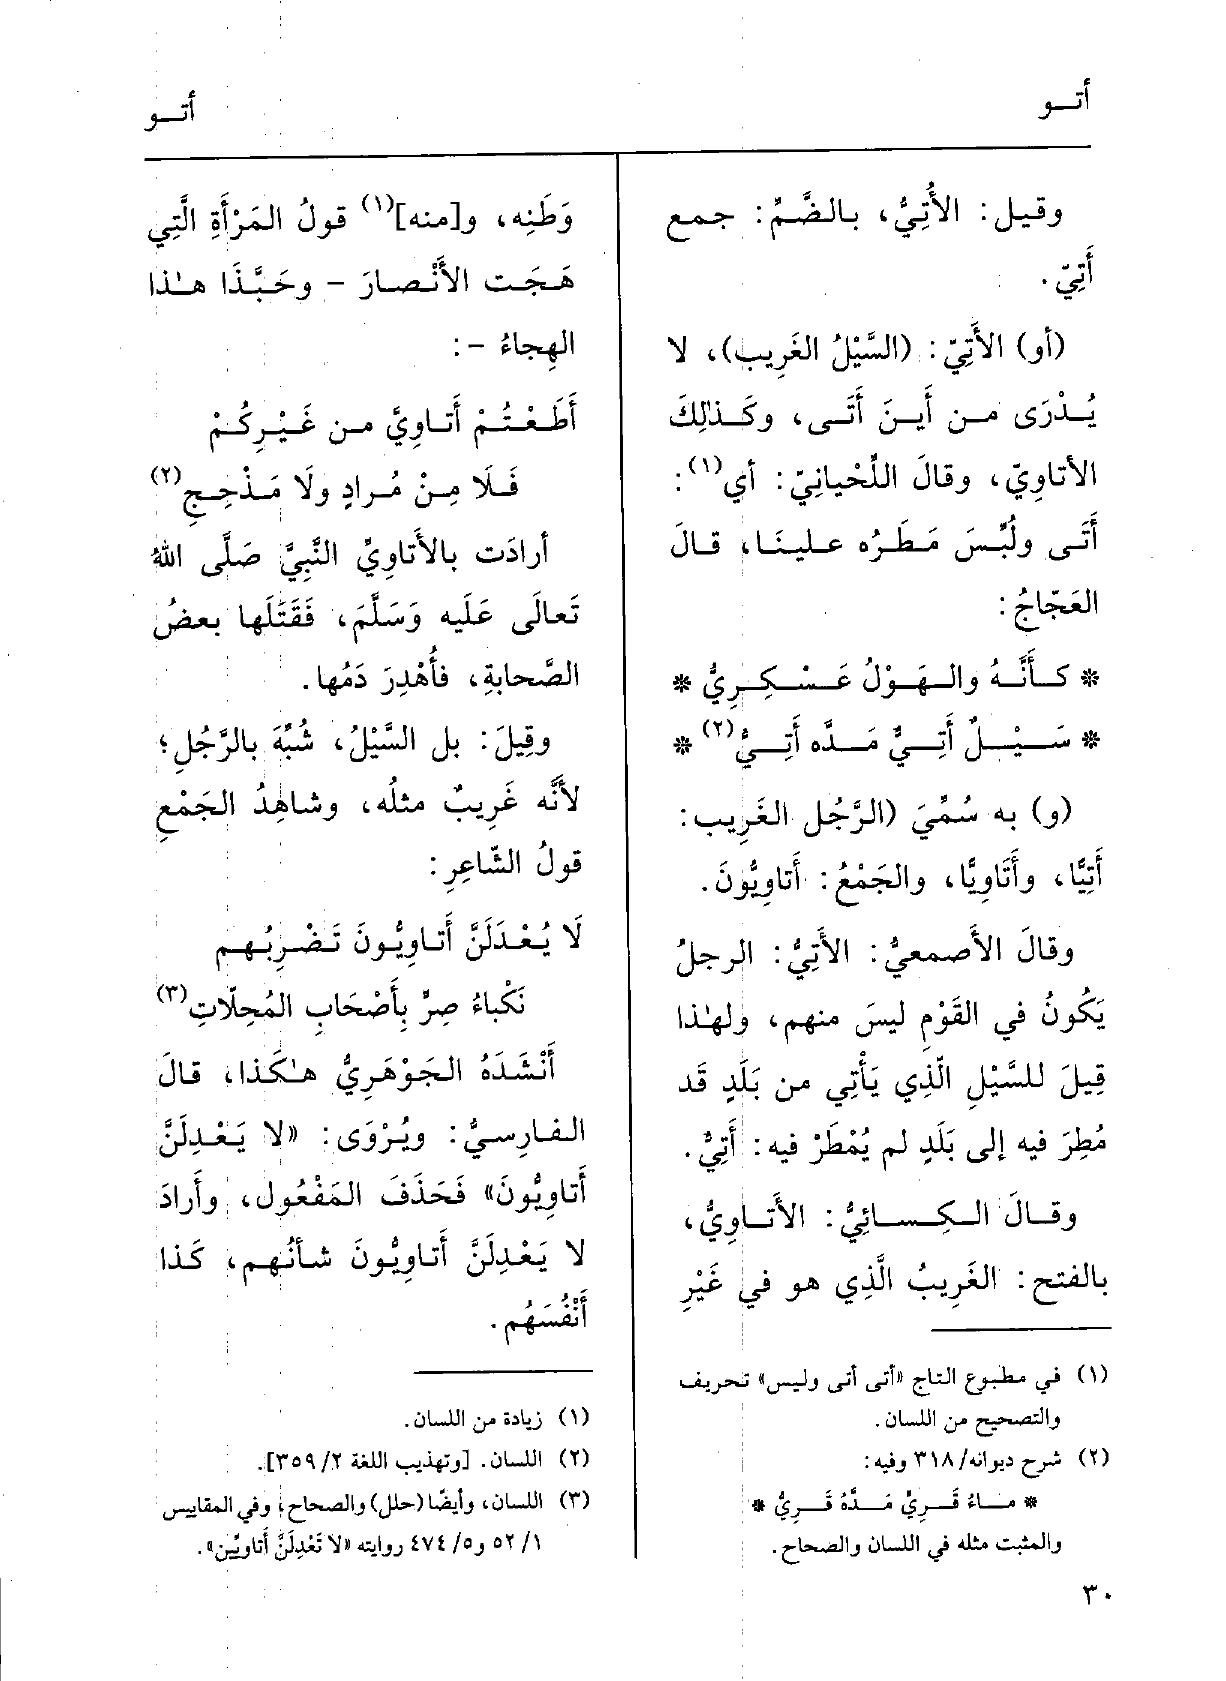 أتـو
أتـو
وقيل: الأُتِيُّ، بالضَّمِّ: جمع
أَتِيّ.
(أو) الأَتِيّ: (السَّيْلُ الغَرِيب)، لا
يُدْرَى من أَينَ أَتَى، وكَذلِكَ
الأتاوِيّ، وقالَ اللِّحْيانِيّ: أي(١):
أَتَى ولُبِّسَ مَطَرُه علينَا، قالَ
العَجّاجُ:
* كأَنَّهُ والهَوْلُ عَسْكِرِيُّ *
* سَيْلٌ أَتِيٌّ مَدَّه أَتِيُّ(٢) *
(و) به سُمِّيَ (الرَّجُل الغَرِيب:
أَتِيًّا، وأَتَاوِيًّا، والجَمْعُ: أَتاوِيُّونَ.
وقالَ الأصمعيُّ: الأَتِيُّ: الرجلُ
يَكُونُ في القَوْمِ ليسَ منهم، ولهٰذا
قِيلَ للسَّيْلِ الَّذِي يَأْتِي من بَلَدٍ قَد
مُطِرَ فيه إلى بَلَدٍ لم يُمْطَرْ فيه: أَتِيٌّ.
وقالَ الكِسائِيُّ: الأَتاوِيُّ،
بالفتح: الغَرِيبُ الَّذِي هو في غَيْرِ
(١) في مطبوع التاج «أتى أتى وليس» تحريف
والتصحيح من اللسان.
(٢) شرح ديوانه/ ٣١٨ وفيه:
* ماءُ قَرِيٍّ مَدَّهُ قَرِيُّ *
والمثبت مثله في اللسان والصحاح.
وَطَنِه، و[منه](١) قولُ المَرْأَةِ الَّتِي
هَجَت الأَنْصارَ - وحَبَّذَا هٰذا
الهِجاءُ -:
أَطَعْتُمْ أَتاوِيَّ من غَيْرِكُمْ
فَلَا مِنْ مُرادٍ ولَا مَذْحِجِ(٢)
أرادَت بالأَتاوِيِّ النَّبِيَّ صَلَّى اللهُ
تَعالَى عَلَيه وَسَلَّمَ، فَقَتَلَها بعضُ
الصَّحابةِ، فأُهْدِرَ دَمُها.
وقِيلَ: بل السَّيْلُ، شُبِّهَ بالرَّجُلِ؛
لأَنَّه غَرِيبٌ مثلُه، وشاهِدُ الجَمْعِ
قولُ الشّاعِرِ:
لَا يُعْدَلَنَّ أَتاوِيُّونَ تَضْرِبُهم
نَكْباءُ صِرٌّ بِأَصْحَابِ المُحِلّاتِ(٣)
أَنْشَدَهُ الجَوْهَرِيُّ هٰكَذا، قالَ
الفارِسيُّ: ويُرْوَى: «لا يَعْدِلَنَّ
أَتاوِيُّونَ» فَحَذَفَ المَفْعُول، وأَرادَ
لا يَعْدِلَنَّ أَتاوِيُّونَ شأنُهم، كَذا
أَنْفُسَهُم.
(١) زيادة من اللسان.
(٢) اللسان. [وتهذيب اللغة ٢/ ٣٥٩].
(٣) اللسان، وأيضًا (حلل) والصحاح، وفي المقاييس
١/ ٥٢ و٥/ ٤٧٤ روايته «لا تَعْدِلَنَّ أَتاوِيِّين».
٣٠